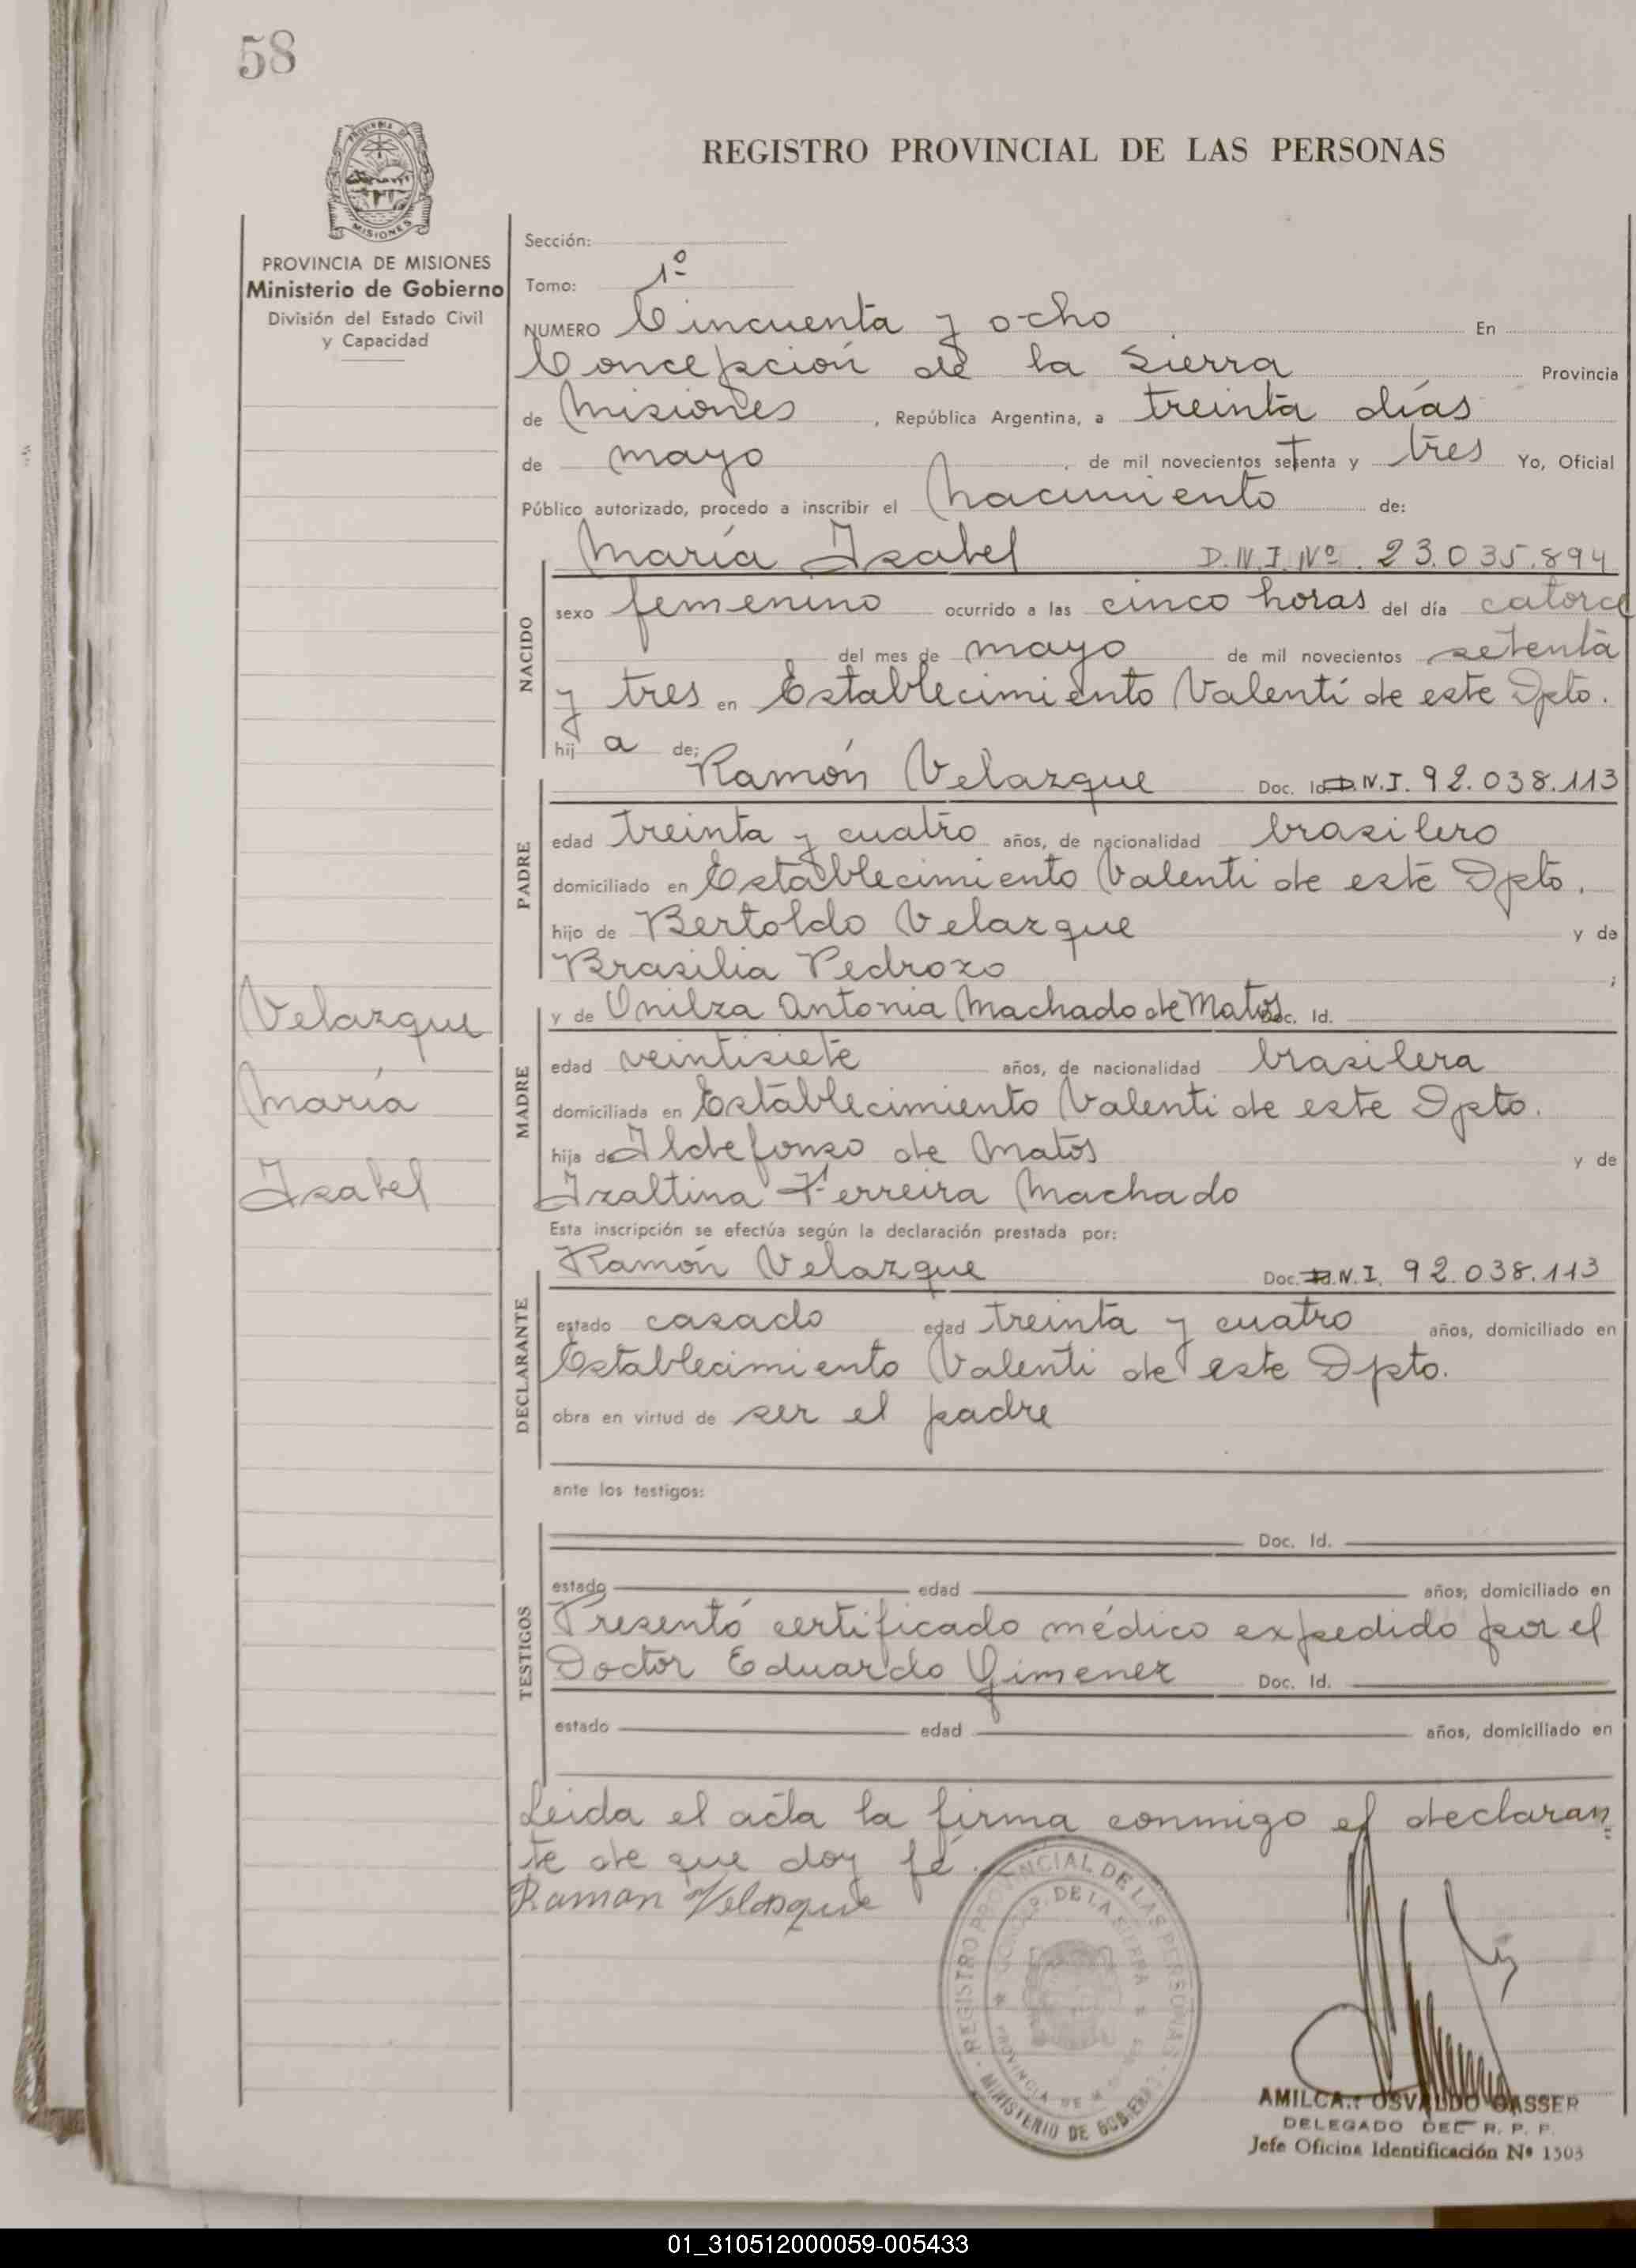 58
REGISTRO PROVINCIAL DE LAS PERSONAS
MISIONES
PROVINCIA DE MISIONES
Ministerio de Gobierno
División del Estado Civil
y Capacidad
Sección:
Tomo: 1º
NUMERO Cincuenta y ocho En
Concepción de la Sierra Provincia
de Misiones, República Argentina, a treinta días
de mayo, de mil novecientos setenta y tres Yo, Oficial
Público autorizado, procedo a inscribir el Nacimiento de:
María Isabel D.N.I. Nº. 23.035.894
NACIDO
sexo femenino ocurrido a las cinco horas del día catorce
del mes de mayo de mil novecientos setenta
y tres en Establecimiento Valenti de este Dpto.
hij a de:
Ramón Velazque Doc. Id. D.N.I. 92.038.113
PADRE
edad treinta y cuatro años, de nacionalidad brasilero
domiciliado en Establecimiento Valenti de este Dpto.
hijo de Bertoldo Velazque y de
Brasilia Pedrozo ;
y de Onilza Antonia Machado de Matos Doc. Id.
MADRE
edad veintisiete años, de nacionalidad brasilera
domiciliada en Establecimiento Valenti de este Dpto.
hija de Ildefonso de Matos y de
Izaltina Ferreira Machado
Velazque
María
Isabel
Esta inscripción se efectúa según la declaración prestada por:
Ramón Velazque Doc. Id. D.N.I. 92.038.113
DECLARANTE
estado casado edad treinta y cuatro años, domiciliado en
Establecimiento Valenti de este Dpto.
obra en virtud de ser el padre
ante los testigos:
Doc. Id.
TESTIGOS
estado edad años, domiciliado en
Presentó certificado médico expedido por el
Doctor Eduardo Gimenez Doc. Id.
estado edad años, domiciliado en
Leida el acta la firma conmigo el declaran
te de que doy fé.
Raman Velasque
REGISTRO PROVINCIAL DE LAS PERSONAS
CONCEP. DE LA SIERRA
PROVINCIA DE MISIONES
MINISTERIO DE GOBIERNO
AMILCAR OSVALDO GASSER
DELEGADO DEL R. P. P.
Jefe Oficina Identificación Nº 1503
01_310512000059-005433